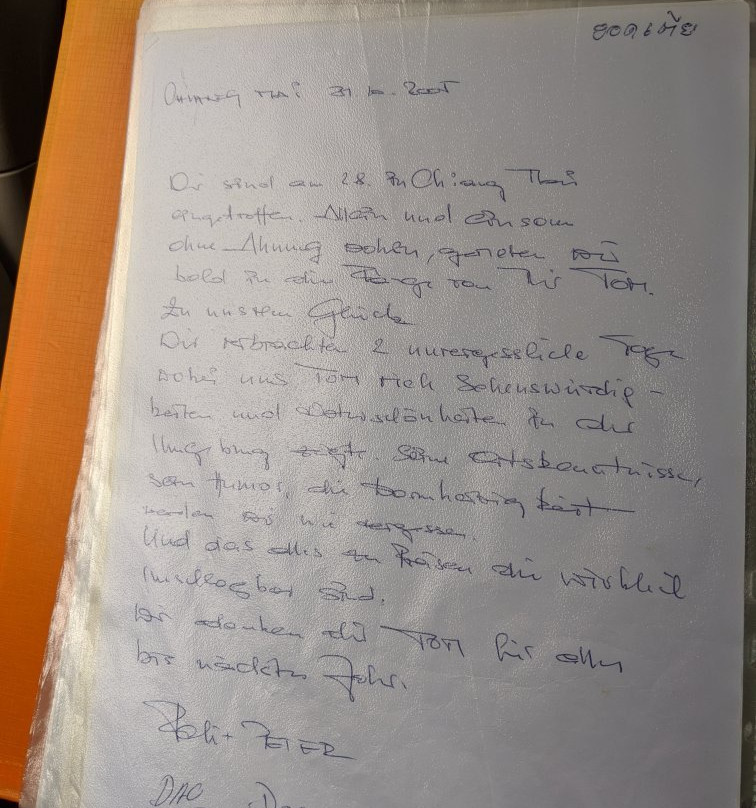 ยอดเตี้ย
CHIANG MAI 31 10. 2005
Wir sind am 28. in Chiang Mai
eingetroffen. Allein und einsam
ohne Ahnung gerieten wir
bald in die von Mr Tom.
Zu unserem Glück
Wir verbrachten 2 unvergessliche Tage
wobei uns Tom viele Sehenswürdig-
keiten und Naturschönheiten in der
Umgebung zeigte. Seine Ortskenntnisse,
sein Humor, die Barmherzigkeit
werden wir nie vergessen.
Und das alles zu Preisen die wirklich
unschlagbar sind.
Wir danken dir Tom für alles
bis nächstes Jahr.
PETER